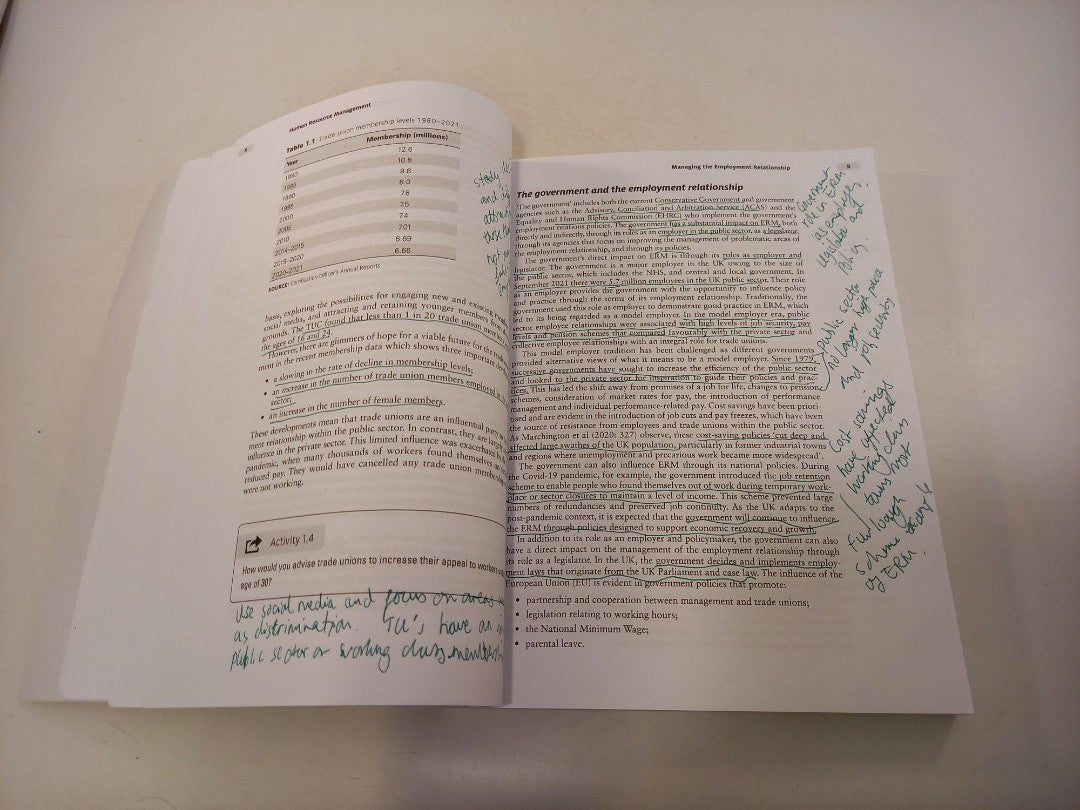 Human Resource Management
Table 1.1 Trade union membership levels 1980–2021
Year Membership (millions)
1980 12.6
1985 10.8
1990 9.8
1995 8.0
2000 7.8
2005 7.6
2010 7.4
2014–2015 7.01
2019–2020 6.69
2020–2021 6.66
SOURCE: Certification Officer's Annual Reports
basis, exploring the possibilities for engaging new and existing
social media, and attracting and retaining younger members from
grounds. The TUC found that less than 1 in 20 trade union
the ages of 16 and 24.
However, there are glimmers of hope for a viable future for the
ment in the recent membership data which shows three important
• a slowing in the rate of decline in membership levels;
• an increase in the number of trade union members employed
sector;
• an increase in the number of female members.
These developments mean that trade unions are an influential party
ment relationship within the public sector. In contrast, they are
influence in the private sector. This limited influence was exacerbated
pandemic, when many thousands of workers found themselves
reduced pay. They would have cancelled any trade union
were not working.
Activity 1.4
How would you advise trade unions to increase their appeal to workers
age of 30?
Use social media and focus on areas
as discrimination. TU's have an
public sector or working class
Managing the Employment Relationship 9
The government and the employment relationship
'The government' includes both the current Conservative Government and government
agencies such as the Advisory, Conciliation and Arbitration Service (ACAS) and the
Equality and Human Rights Commission (EHRC) who implement the government's
employment relations policies. The government has a substantial impact on ERM, both
directly and indirectly, through its roles as an employer in the public sector, as a legislator,
through its agencies that focus on improving the management of problematic areas of
the employment relationship, and through its policies.
The government's direct impact on ERM is through its roles as employer and
legislator. The government is a major employer in the UK owing to the size of
the public sector, which includes the NHS, and central and local government. In
September 2021 there were 5.7 million employees in the UK public sector. Their role
as an employer provides the government with the opportunity to influence policy
and practice through the terms of its employment relationship. Traditionally, the
government used this role as employer to demonstrate good practice in ERM, which
led to its being regarded as a model employer. In the model employer era, public
sector employee relationships were associated with high levels of job security, pay
levels and pension schemes that compared favourably with the private sector and
collective employee relationships with an integral role for trade unions.
This model employer tradition has been challenged as different governments
provided alternative views of what it means to be a model employer. Since 1979,
successive governments have sought to increase the efficiency of the public sector
and looked to the private sector for inspiration to guide their policies and prac-
tices. This has led the shift away from promises of a job for life, changes to pension
schemes, consideration of market rates for pay, the introduction of performance
management and individual performance-related pay. Cost savings have been priori-
tised and are evident in the introduction of job cuts and pay freezes, which have been
the source of resistance from employees and trade unions within the public sector.
As Marchington et al (2020: 327) observe, these cost-saving policies 'cut deep and
affected large swathes of the UK population, particularly in former industrial towns
and regions where unemployment and precarious work became more widespread'.
The government can also influence ERM through its national policies. During
the Covid-19 pandemic, for example, the government introduced the job retention
scheme to enable people who found themselves out of work during temporary work-
place or sector closures to maintain a level of income. This scheme prevented large
numbers of redundancies and preserved job continuity. As the UK adapts to the
post-pandemic context, it is expected that the government will continue to influence
the ERM through policies designed to support economic recovery and growth.
In addition to its role as an employer and policymaker, the government can also
have a direct impact on the management of the employment relationship through
its role as a legislator. In the UK, the government decides and implements employ-
ment laws that originate from the UK Parliament and case law. The influence of the
European Union (EU) is evident in government policies that promote:
• partnership and cooperation between management and trade unions;
• legislation relating to working hours;
• the National Minimum Wage;
• parental leave.
Government
role in ERM
as employer,
legislator and
policy.
public sector
no longer high pay
and job security
Cost savings
have affected
working class
towns most
Furlough
scheme example
of ERM.